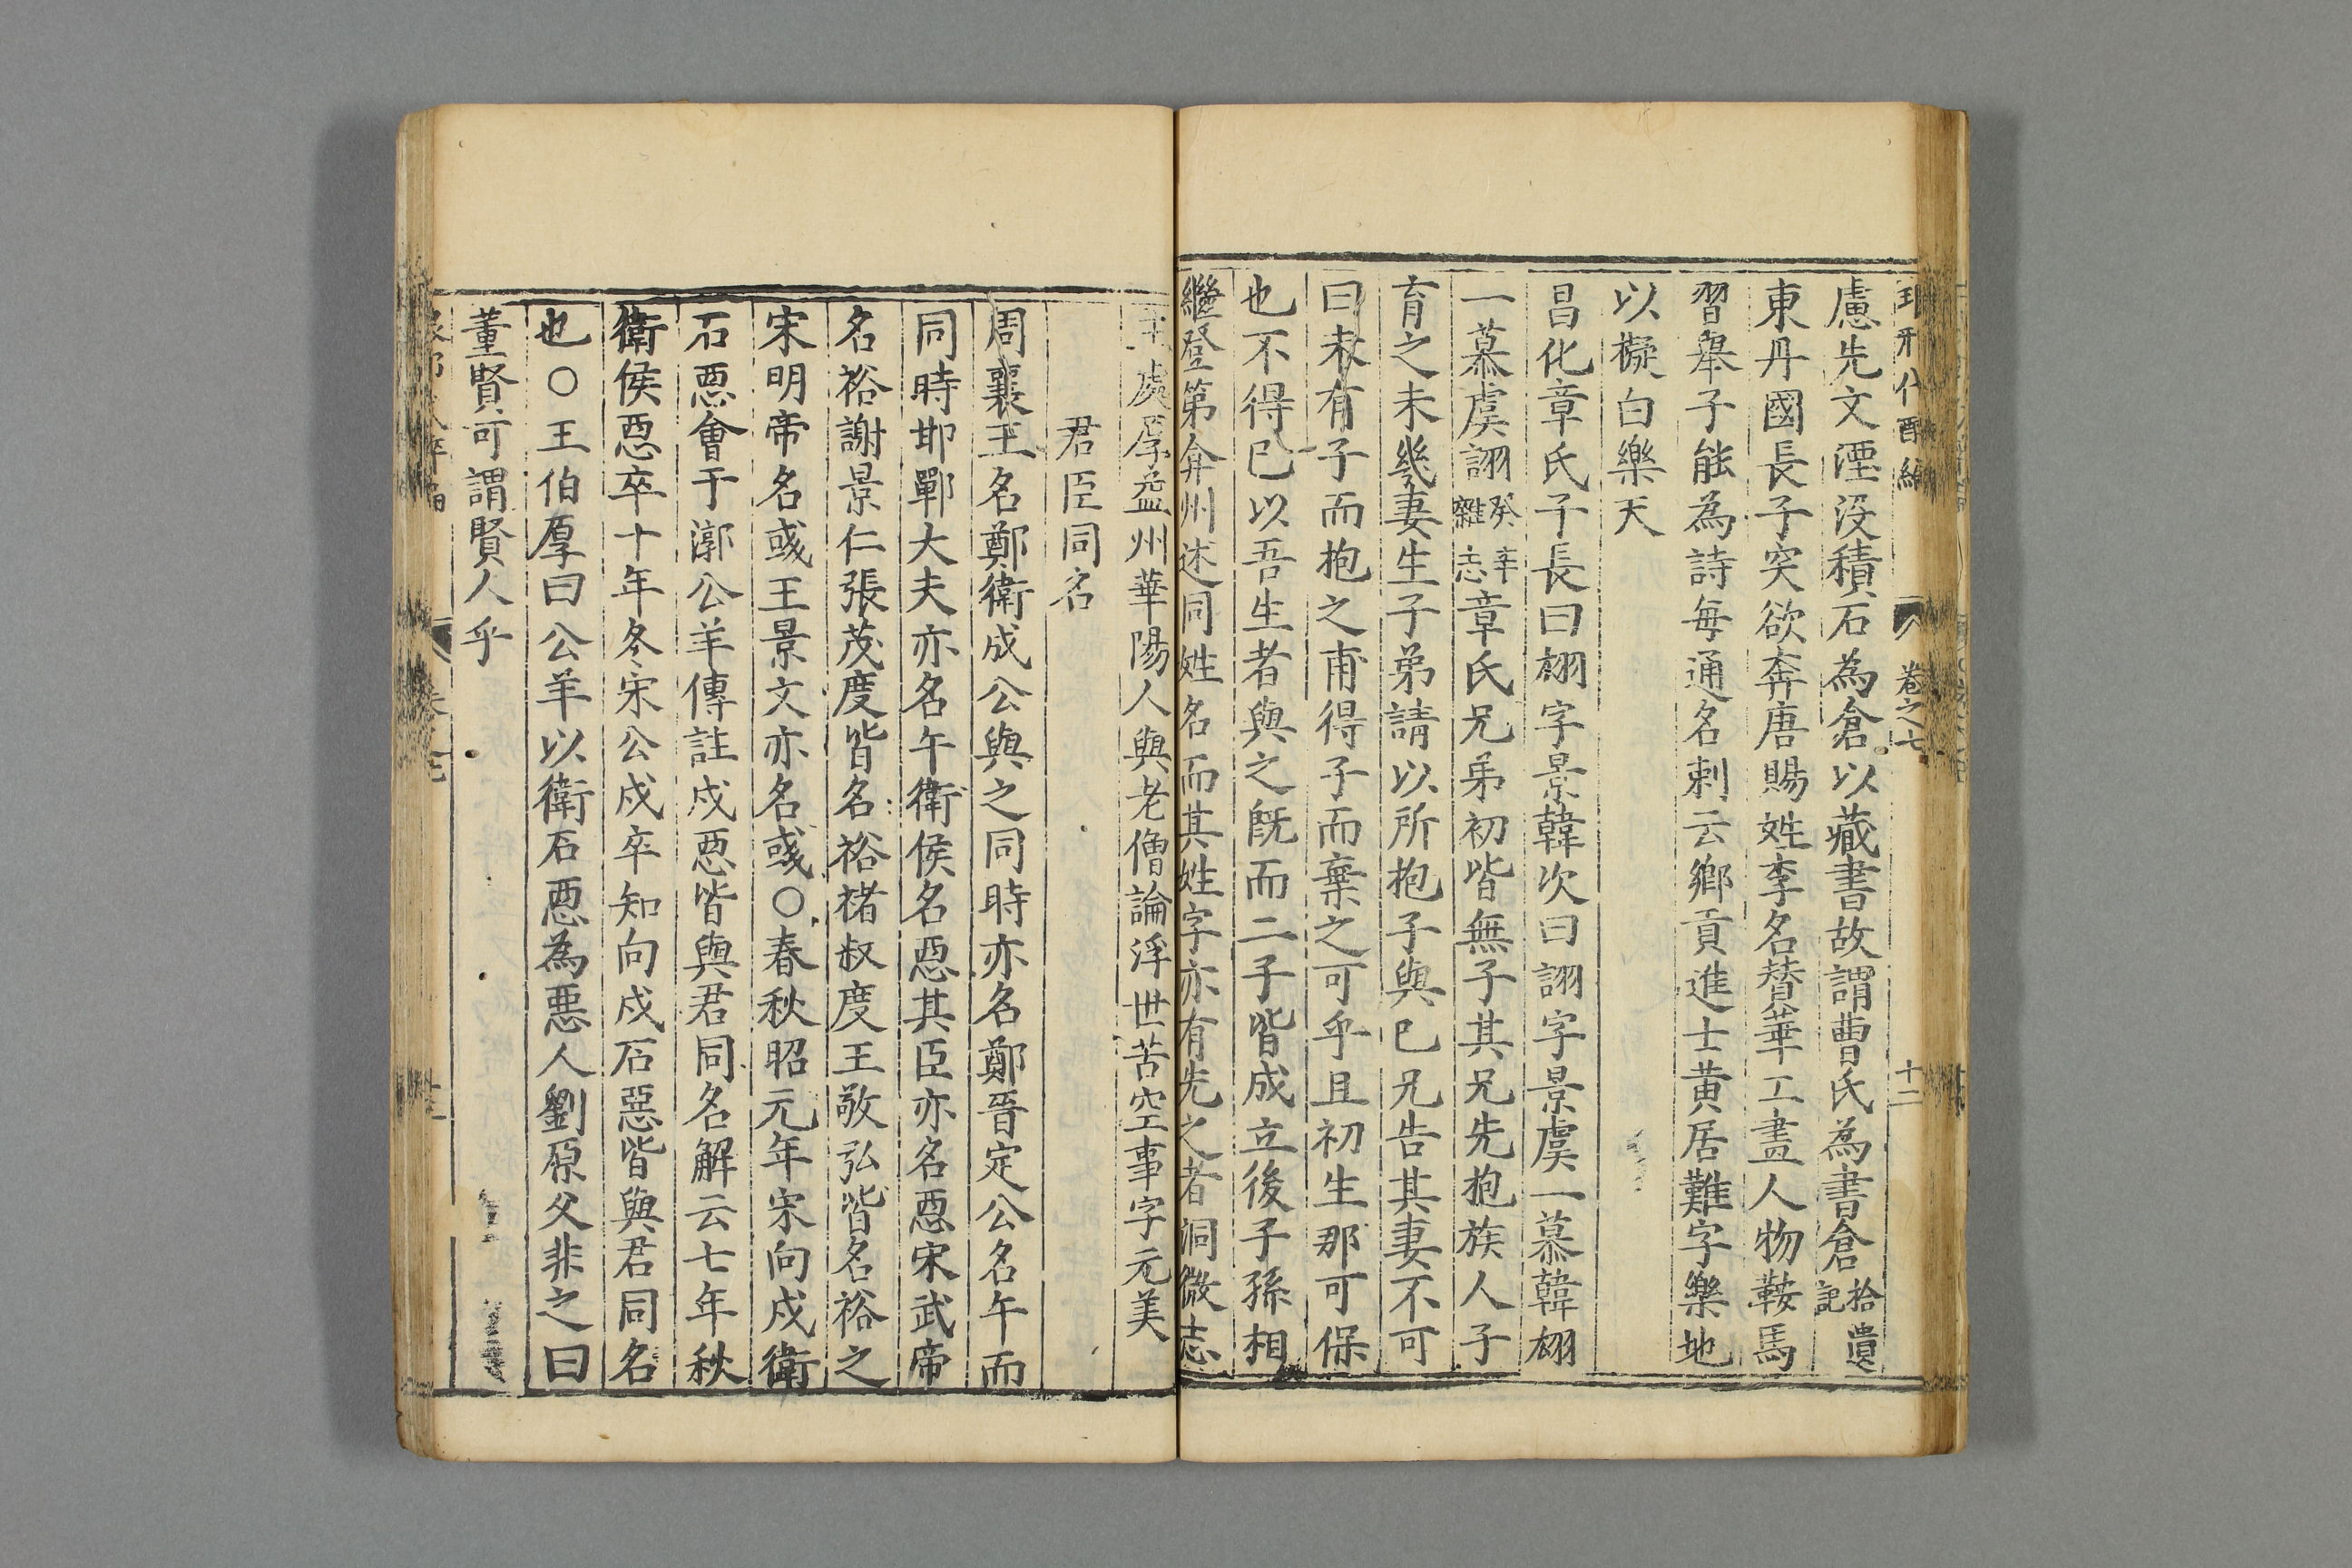 卷之七
十二
慮先文湮没積石為倉以藏書故謂曹氏為書倉拾遺記
東丹國長子突欲奔唐賜姓李名賛華工畫人物鞍馬
習舉子能為詩每通名刺云鄉貢進士黄居難字樂地
以擬白樂天
昌化章氏子長曰栩字景韓次曰詡字景虞一慕韓栩
一慕虞詡癸辛雜志章氏兄弟初皆無子其兄先抱族人子
育之未幾妻生子弟請以所抱子與巳兄告其妻妻不可
曰未有子而抱之甫得子而棄之可乎且初生那可保
也不得巳以吾生者與之旣而二子皆成立後子孫相
繼登第弇州述同姓名而其姓字亦有先之者洞微志
王處厚益州華陽人與老僧論浮世苦空事字元美
君臣同名
周襄王名鄭衛成公與之同時亦名鄭晉定公名午而
同時邯鄲大夫亦名午衛侯名惡其臣亦名惡宋武帝
名裕謝景仁張茂度皆名裕禇叔度王敬弘皆名裕之
宋明帝名彧王景文亦名彧○春秋昭元年宋向戍衛
石惡會于漷公羊傳註戍惡皆與君同名解云七年秋
衛侯惡卒十年冬宋公戍卒知向戍石惡皆與君同名
也○王伯厚曰公羊以衛石惡為惡人劉原父非之曰
董賢可謂賢人乎